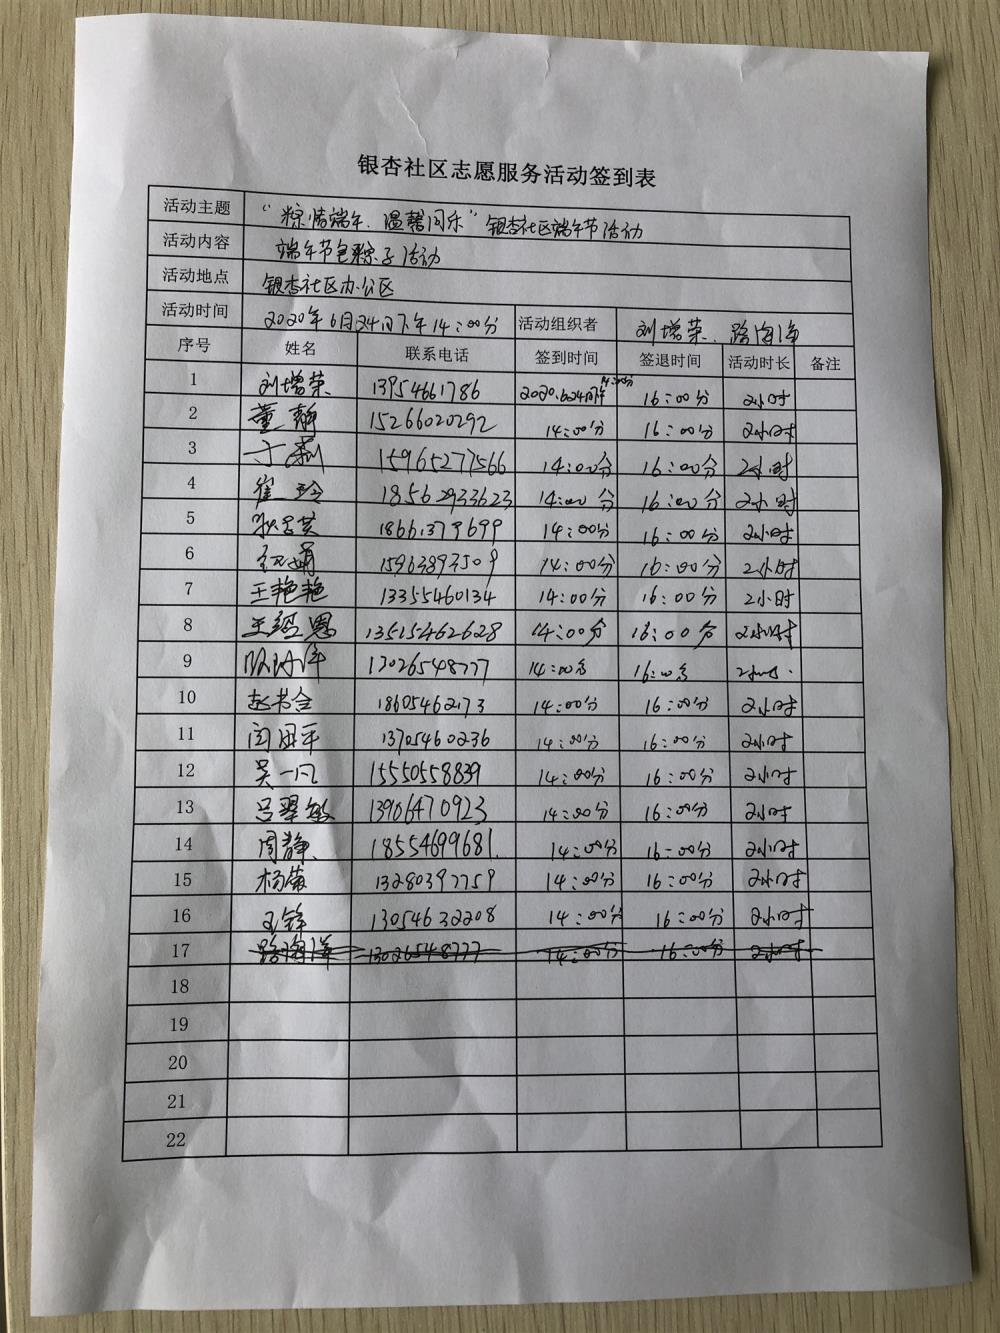 银杏社区志愿服务活动签到表
活动主题 “粽情端午、温馨同乐”银杏社区端午节活动
活动内容 端午节包粽子活动
活动地点 银杏社区办公区
活动时间 2020年6月24日下午14:00分 活动组织者 刘增荣、路海洋
序号 姓名 联系电话 签到时间 签退时间 活动时长 备注
1 刘增荣 13954661786 2020.6.24日下午14:00分 16:00分 2小时
2 董静 15266020292 14:00分 16:00分 2小时
3 15965277566 14:00分 16:00分 2小时
4 崔玲 18562933623 14:00分 16:00分 2小时
5 18661379699 14:00分 16:00分 2小时
6 15963893509 14:00分 16:00分 2小时
7 王艳艳 13355460134 14:00分 16:00分 2小时
8 13515462628 14:00分 16:00分 2小时
9 13026548777 14:00分 16:00分 2小时.
10 赵书金 18605462173 14:00分 16:00分 2小时
11 13705460236 14:00分 16:00分 2小时
12 吴一凡 15550558839 14:00分 16:00分 2小时
13 吕翠敏 13906470923 14:00分 16:00分 2小时
14 周静 18554699681. 14:00分 16:00分 2小时
15 杨菊 13280397759 14:00分 16:00分 2小时
16 13054632208 14:00分 16:00分 2小时
17 路海洋 13026548777 14:00分 16:00分 2小时
18
19
20
21
22